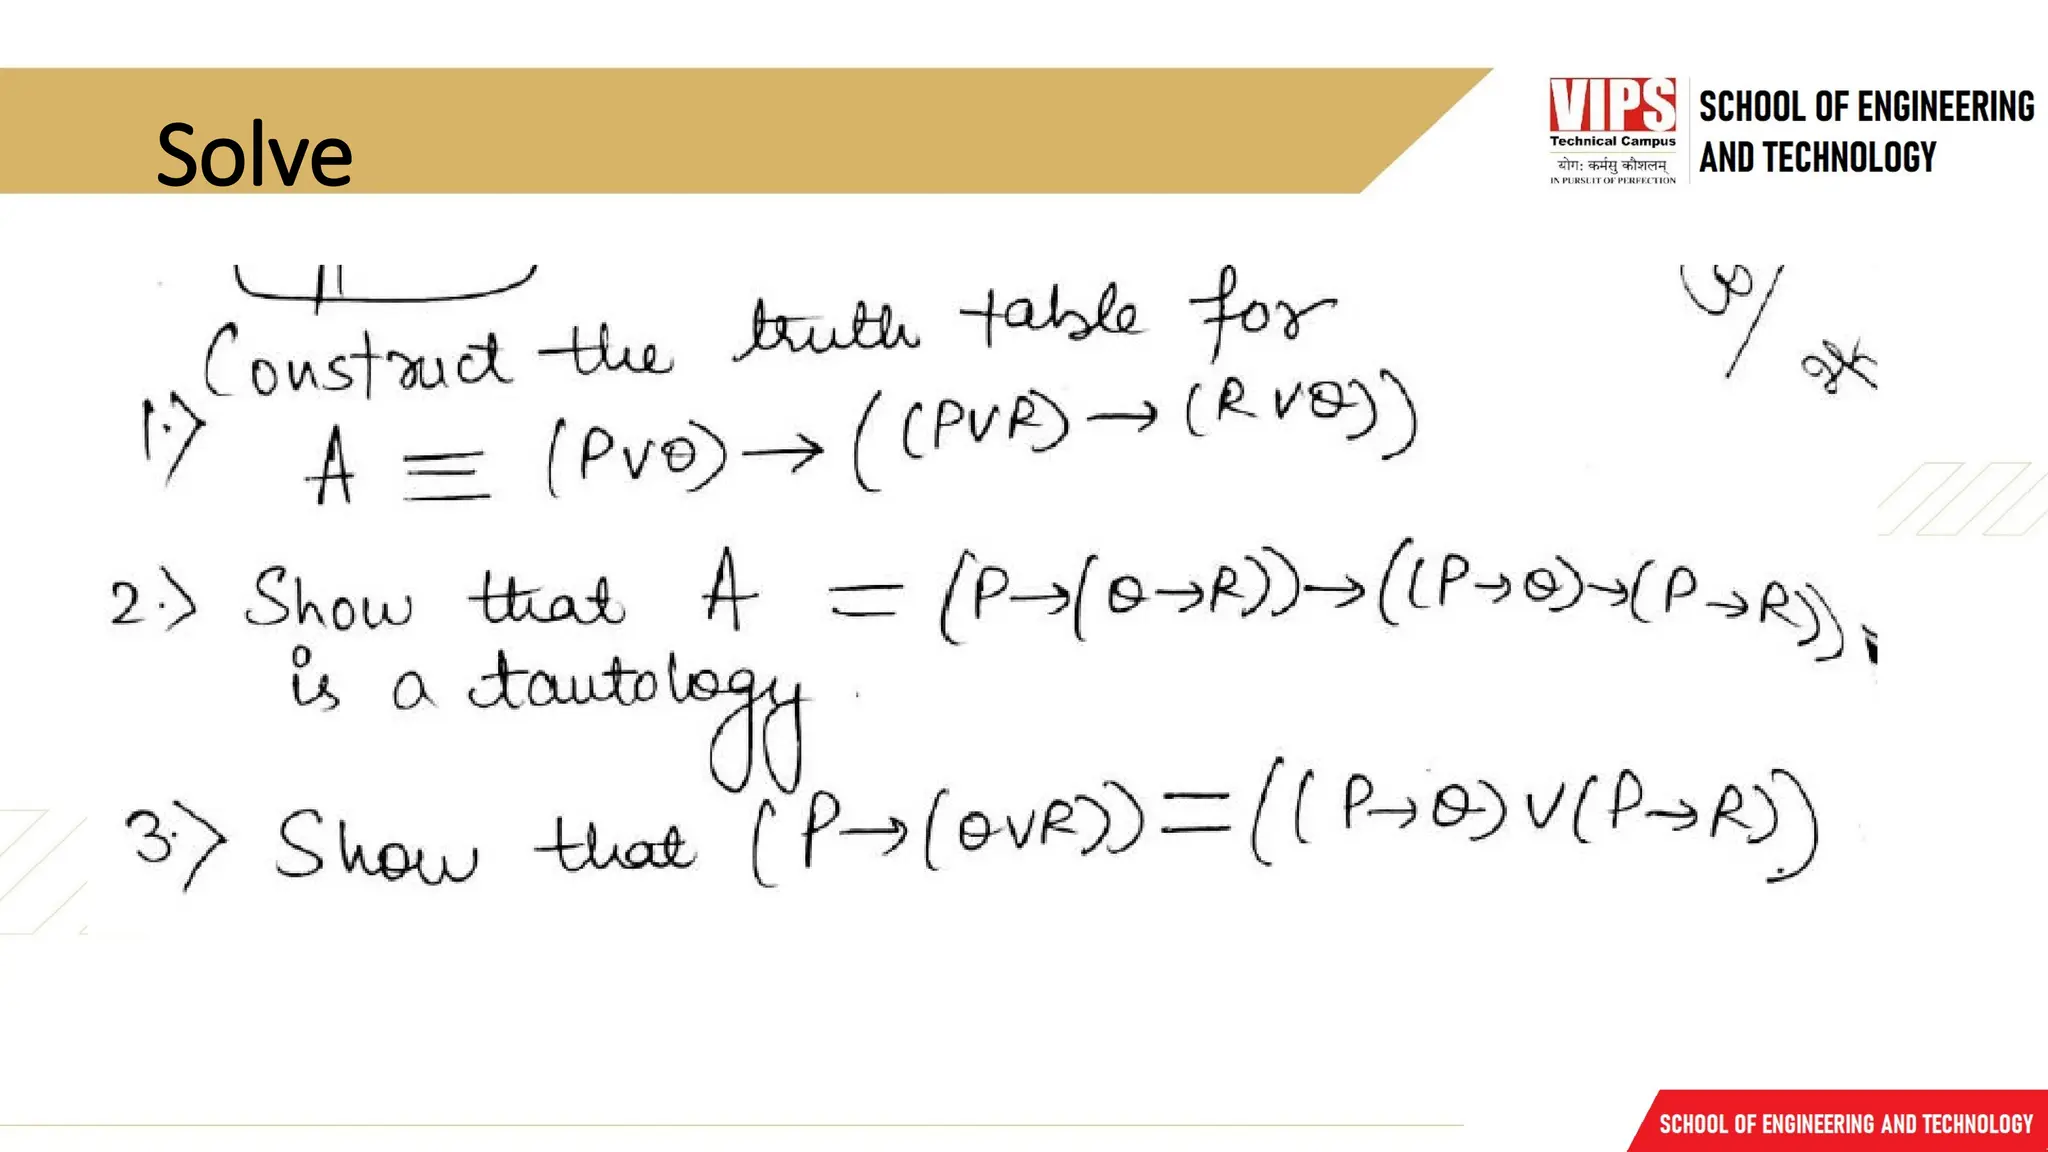 Solve
VIPS
Technical Campus
योगः कर्मसु कौशलम्
IN PURSUIT OF PERFECTION
SCHOOL OF ENGINEERING
AND TECHNOLOGY
Construct the truth table for
1.) A ≡ (P∨Q)→((P∨R)→(R∨Q))
2.) Show that A = (P→(Q→R))→((P→Q)→(P→R)).
is a tautology.
3.) Show that (P→(Q∨R))=((P→Q)∨(P→R))
SCHOOL OF ENGINEERING AND TECHNOLOGY